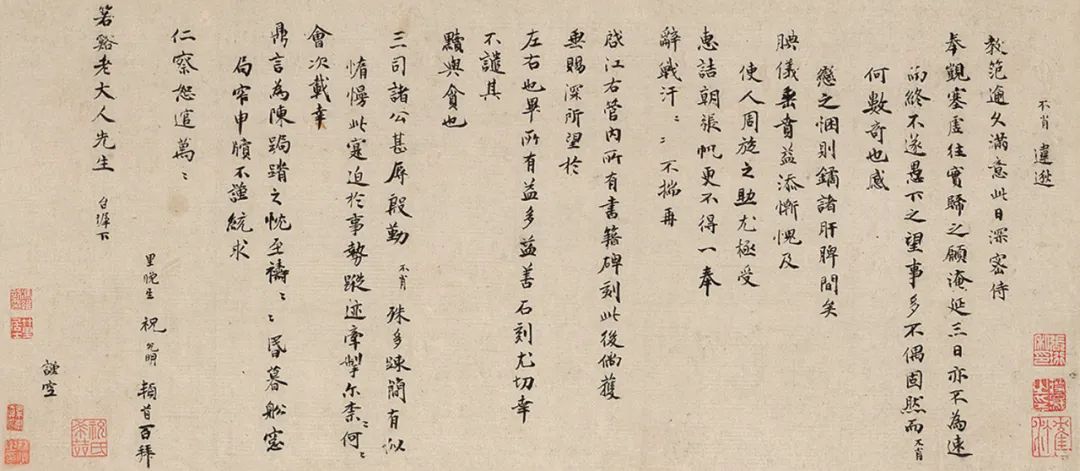 不肖 違逖
教範逾久滿意此日深密侍
奉觀塞虛往實歸之願淹延三日亦不為速
而終不遂愚下之望事多不偶固然而不肖
何數奇也感
戀之悃則諸肝脾間矣
腆儀垂賁益添慚愧及
使人周旋之助尤極受
惠詰朝張帆更不得一奉
辭戰汗〻〻不揣再
啓江右管內所有書籍碑刻此後倘獲
垂賜深所望於
左右也畢所有益多益善石刻尤切幸
不譴其
黷與貪也
三司諸公甚辱殷勤 不肖 殊多踈簡有似
惰慢此寔迫於事勢蹤迹牽掣尔柰〻何〻
會次載幸
鼎言為陳跼蹐之忱至禱〻〻昏暮舩窓
局窄申牘不謹統求
仁察恕萬〻
箬谿老大人先生 台墀下
里晚生 祝允明 頓首百拜
謹空
祝氏希哲